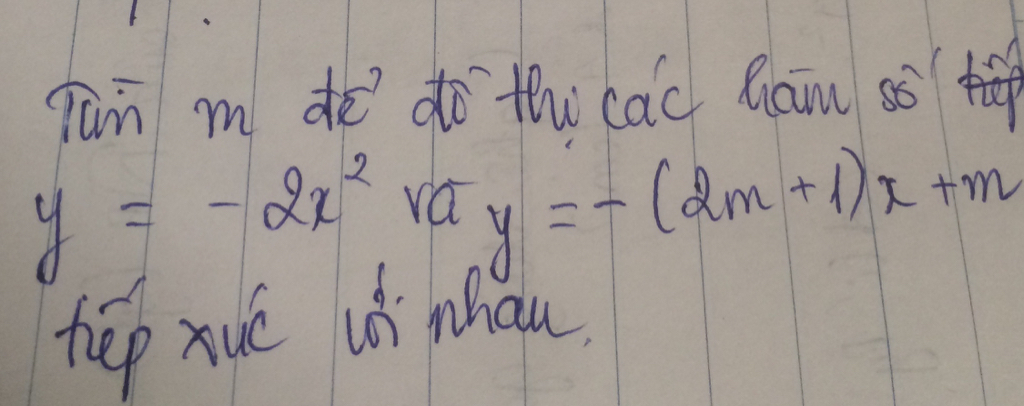 Tìm m để đồ thị các hàm số tiếp
y = - 2x² và y = - (2m + 1)x + m
tiếp xúc với nhau.